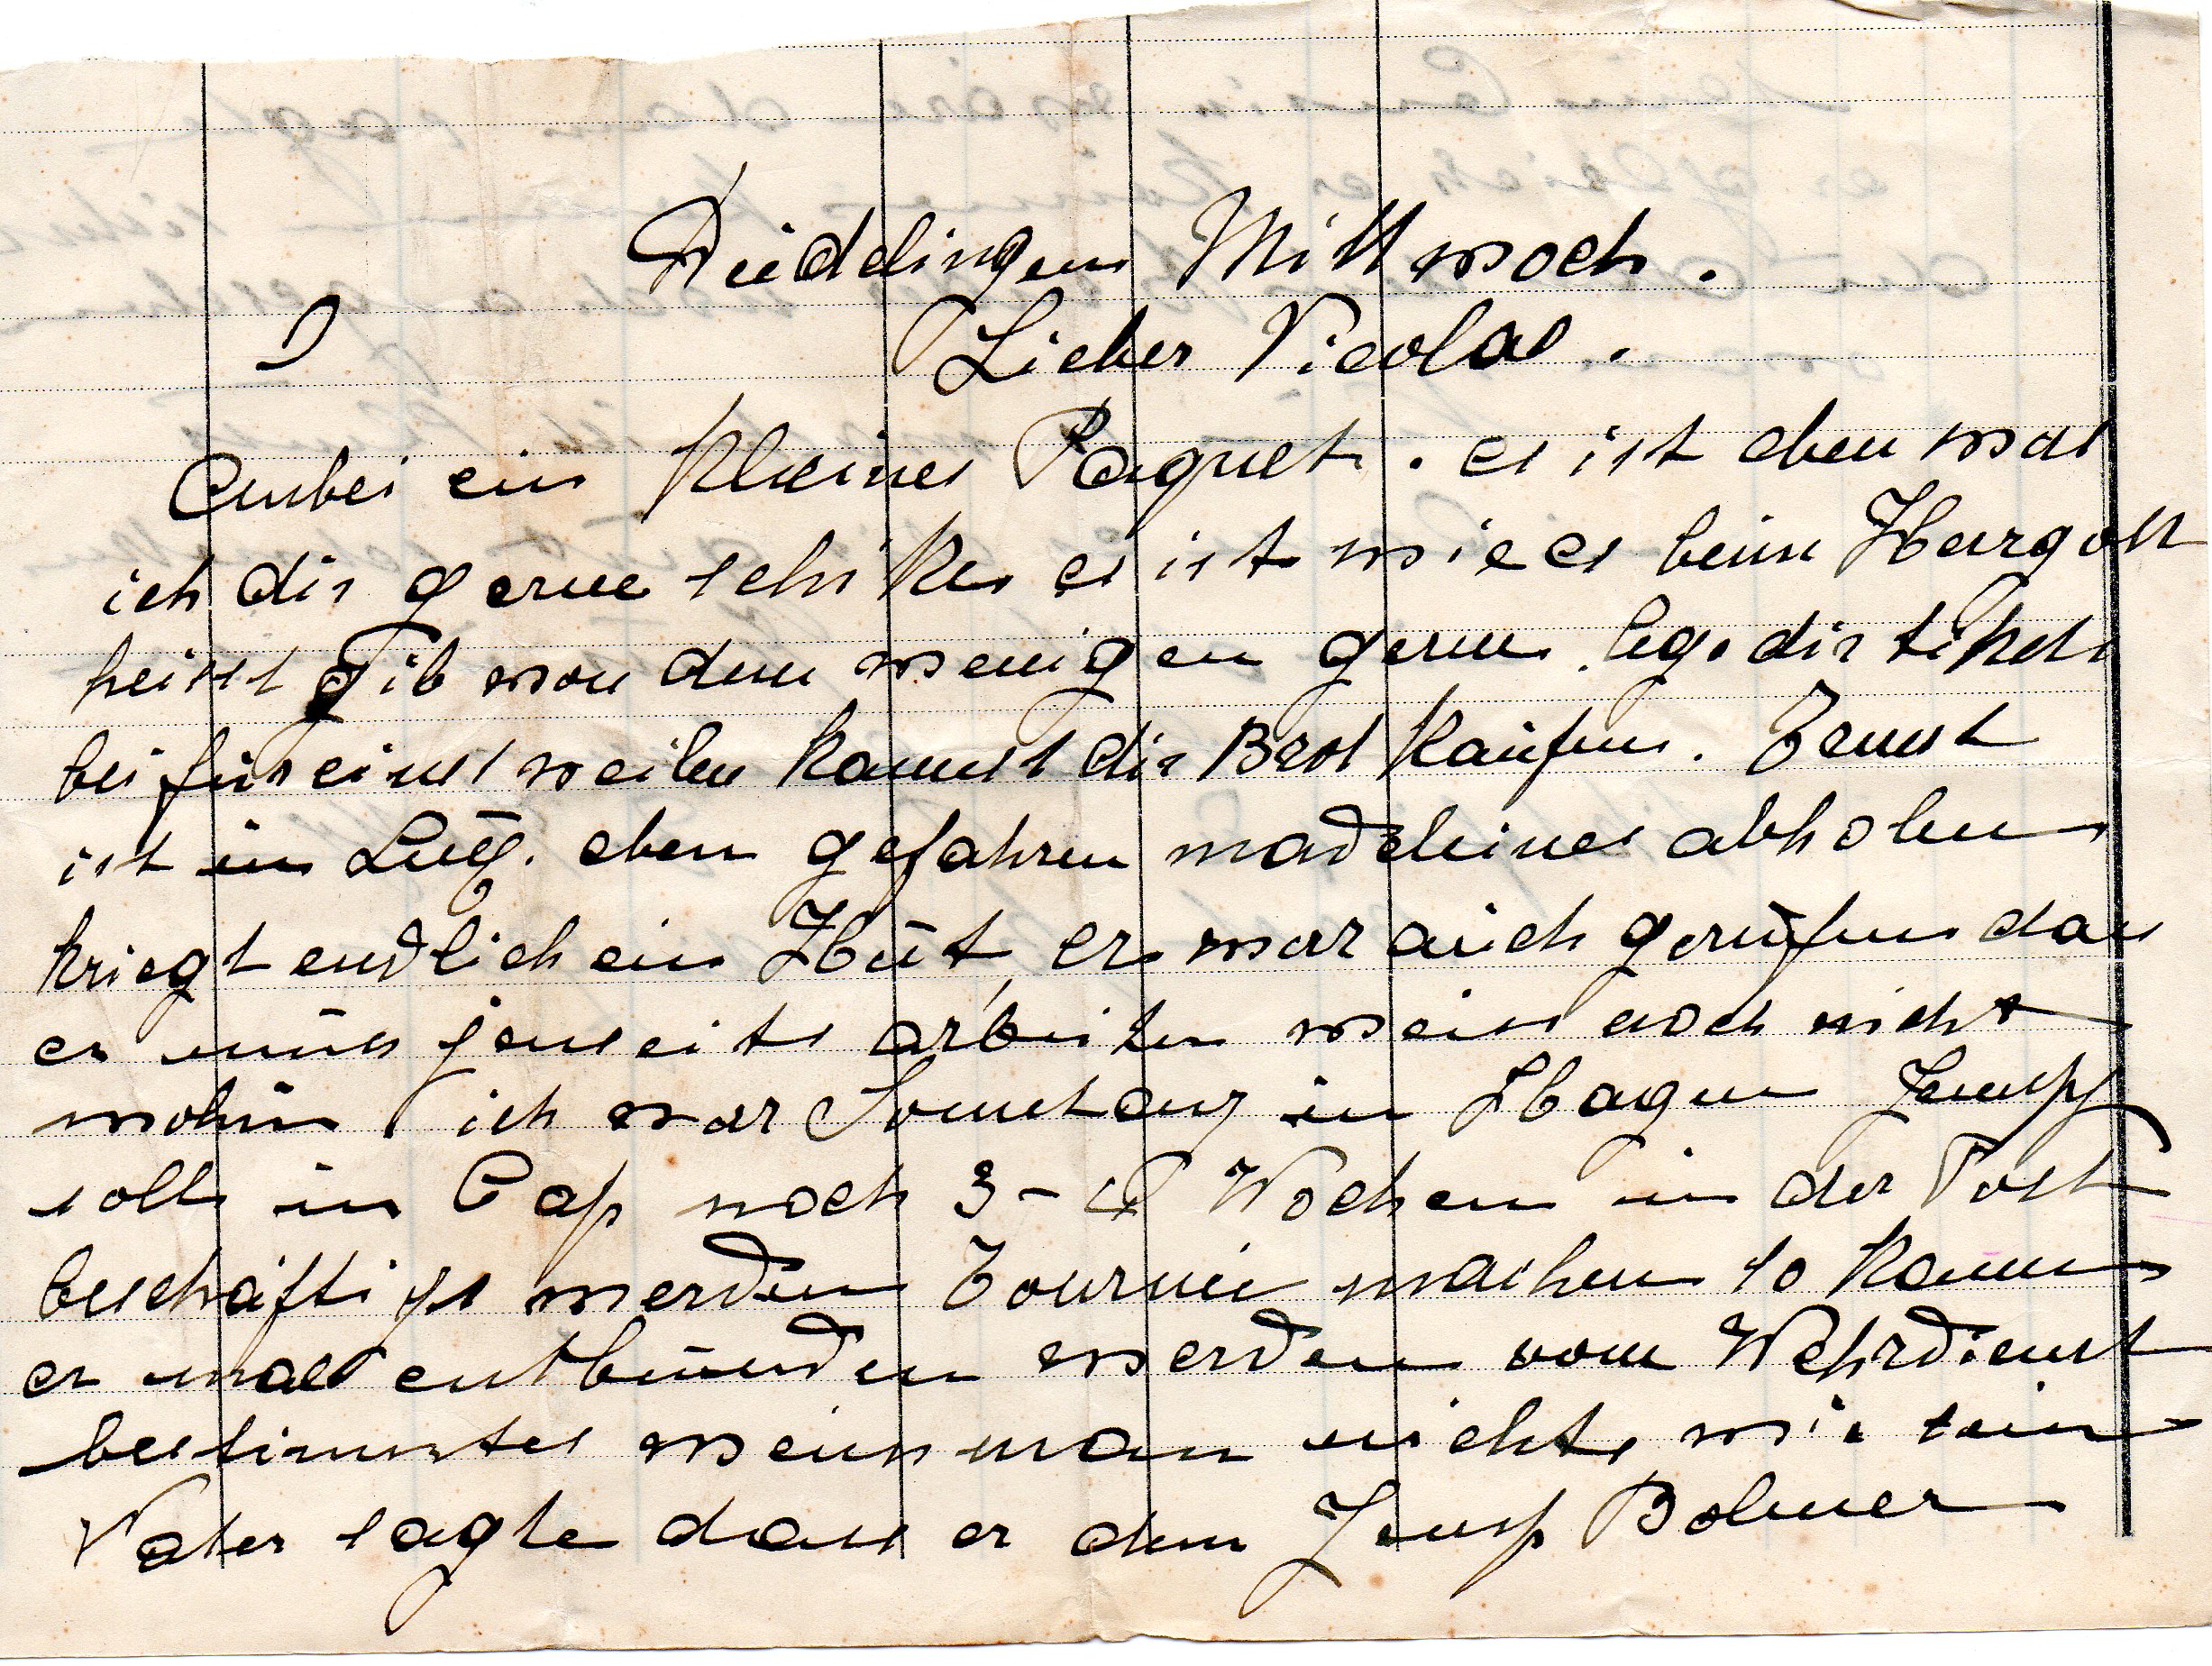 Düddlingen Mittwoch.
I Lieber Nicolas.
Anbei ein kleines Paquet. es ist eben was
ich dir gerne schike es ist wie es beim Herrgott
heisst gib von dem wenigen gerne. lege dir tikets
bei für einstweilen kannst dir Brot kaufen. Ernest
ist in Lux. eben gefahren madeleines abholen
kriegt endlich ein Hut, er war auch gerufen das
er mus jenseits arbeiten weiss noch nicht
wohin, ich war Sonntag in Hagen Jemp
soll in Cap noch 3-4 Wochen in der Post
beschäftigt werden Tournée machen so kann
er mal entbunden werden vom Wehrdienst
bestimmtes weiss man nichts wie sein
Vater sagte dass er dem Jemp Bohner